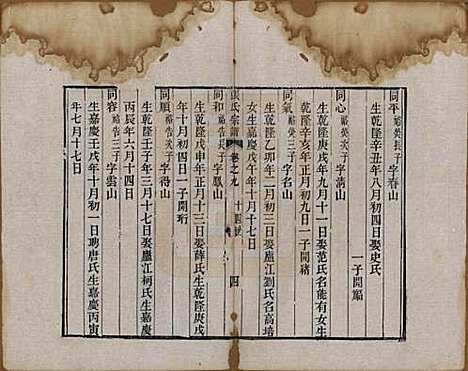 同平 裕英長子 字春山
生乾隆辛丑年八月初四日娶史氏
一子開福
同心 裕英次子 字清山
生乾隆庚戌年九月十一日娶范氏名能有女生
乾隆辛亥年正月初九日一子開緒
同氣 裕英三子 字名山
生乾隆乙卯年二月初三日娶廬江劉氏名高培
女生嘉慶戊午年十月十七日
氏宗譜 卷之九 十四 四
同和 裕告長子 字鳳山
生乾隆戊申年正月十三日娶薛氏生乾隆庚戌
年十月初四日一子開珩
同順 裕告次子 字得山
生乾隆壬子年三月十七日娶廬江柯氏生嘉慶
丙辰年六月十四日
同容 裕告三子 字雲山
生嘉慶壬戌年十月初一日聘唐氏生嘉慶丙寅
年七月十七日